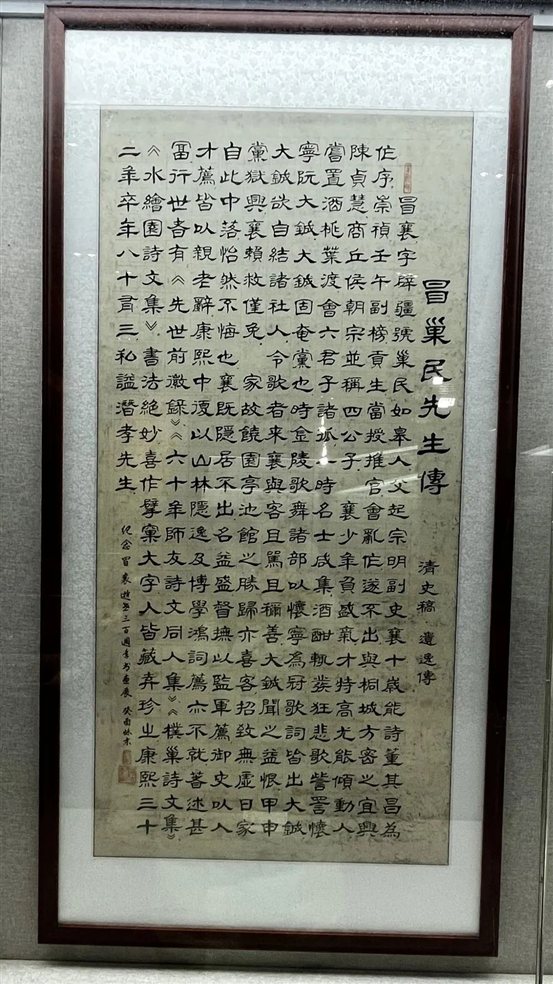 冒巢民先生傳 清史稿 遺逸傳
冒襄字辟疆號巢民如皋人父起宗明副史襄十歲能詩董其昌為
作序崇禎壬午副榜貢生當授推官會亂作遂不出與桐城方密之宜興
陳貞慧商丘侯朝宗並稱四公子 襄少年負盛氣才特高尤能傾動人
嘗置酒桃葉渡會六君子諸孤一時名士咸集酒酣輒發狂悲歌訾詈懷
寧阮大鋮大鋮固奄黨也時金陵歌舞諸部以懷寧為冠歌詞皆出大鋮
大鋮欲自結諸社人令歌者来襄與客且罵且稱善大鋮聞之益恨甲申
黨獄興襄賴救僅免 家故饒園亭池館之勝歸亦喜客招致無虛日家
自此中落怡然不悔也襄既隱居不出名益盛督撫以監軍薦御史以人
才薦皆以親老辭康熙中復以山林隱逸及博學鴻詞薦亦不就著述甚
富行世者有《先世前徵錄》《六十年師友詩文同人集》《樸巢詩文集》
《水繪園詩文集》書法絕妙喜作擘窠大字人皆藏弆珍之康熙三十
二年卒年八十有三私謚潛孝先生
紀念冒襄逝世三百周年書畫展 癸酉